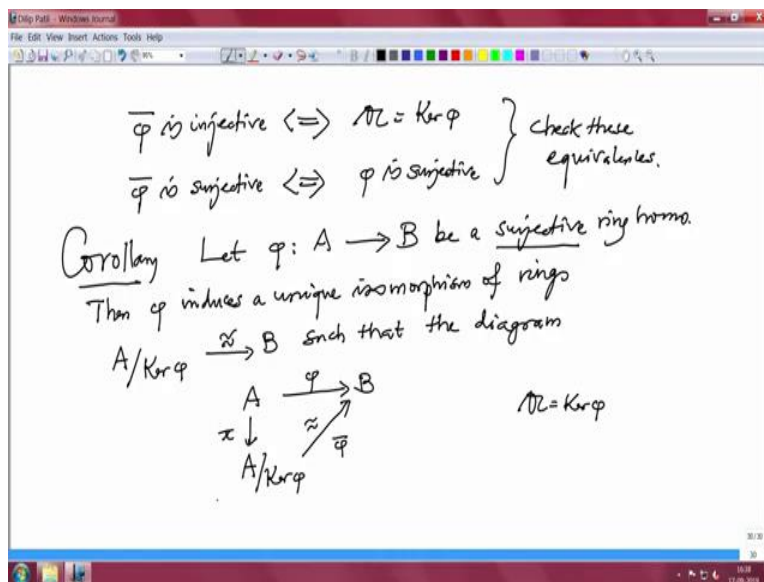 Dilip Patil - Windows Journal
File Edit View Insert Actions Tools Help
φ̄ is injective <=> 𝔞 = Ker φ
φ̄ is surjective <=> φ is surjective
} Check these equivalences.
Corollary Let φ: A → B be a surjective ring homo.
Then φ induces a unique isomorphism of rings
A/Ker φ ≈→ B such that the diagram
A φ→ B
π ↓ ≈ ↗ φ̄
A/Ker φ
𝔞 = Ker φ
30/30
30
16:38